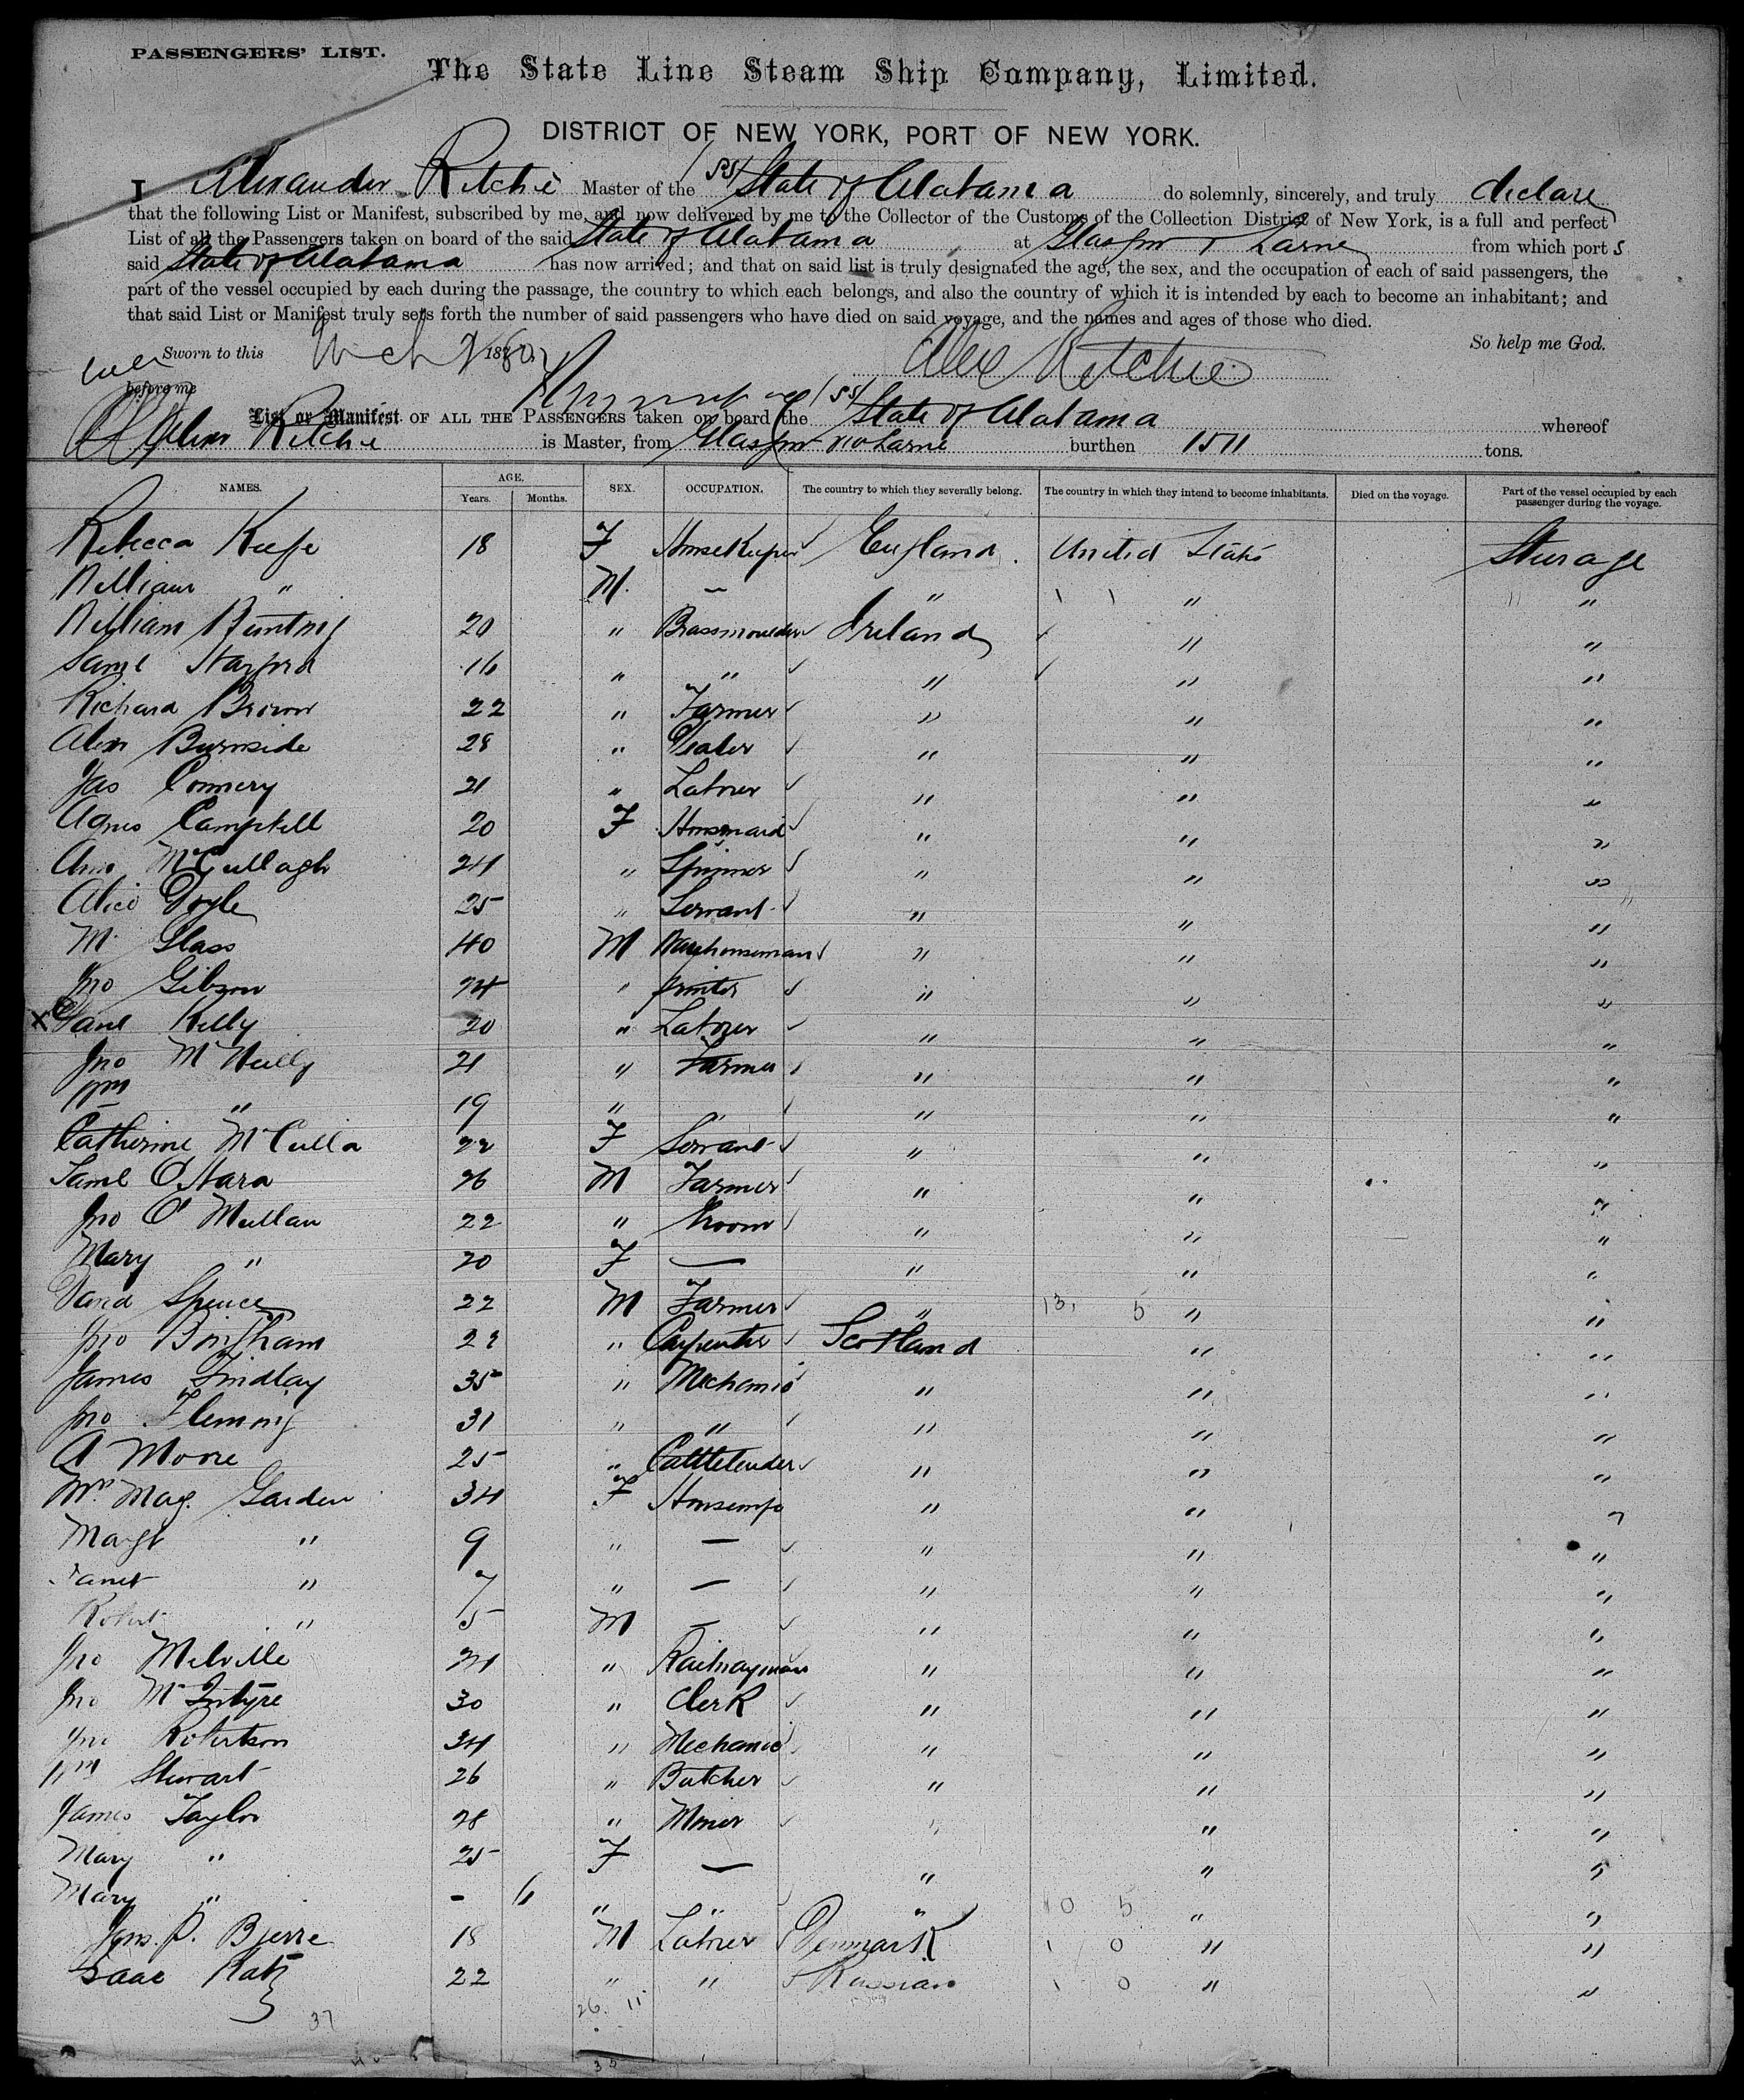 PASSENGERS' LIST.
The State Line Steam Ship Company, Limited.
DISTRICT OF NEW YORK, PORT OF NEW YORK.
I Alexander Ritchie Master of the SS State of Alabama do solemnly, sincerely, and truly declare
that the following List or Manifest, subscribed by me, and now delivered by me to the Collector of the Customs of the Collection District of New York, is a full and perfect
List of all the Passengers taken on board of the said State of Alabama at Glasgow & Larne from which ports
said State of Alabama has now arrived; and that on said list is truly designated the age, the sex, and the occupation of each of said passengers, the
part of the vessel occupied by each during the passage, the country to which each belongs, and also the country of which it is intended by each to become an inhabitant; and
that said List or Manifest truly sets forth the number of said passengers who have died on said voyage, and the names and ages of those who died.
Sworn to this Mch 1880 So help me God.
Alex Ritchie
before me
List or Manifest OF ALL THE PASSENGERS taken on board the SS State of Alabama whereof
Alexr Ritchie is Master, from Glasgow via Larne burthen 1511 tons.
NAMES. AGE. Years. Months. SEX. OCCUPATION. The country to which they severally belong. The country in which they intend to become inhabitants. Died on the voyage. Part of the vessel occupied by each passenger during the voyage.
Rebecca Keefe 18 F Housekeeper England United States Steerage
William " M. — " " "
William Bunting 20 " Brassmoulder Ireland " "
Saml Harford 16 " " " " "
Richard Brown 22 " Farmer " " "
Alexr Burnside 28 " Dealer " " "
Jas Connery 21 " Labourer " " "
Agnes Campbell 20 F Housemaid " " "
Ann McCullagh 24 " Spinner " " "
Alice Doyle 25 " Servant " " "
M. Glass 40 M Warehouseman " " "
Jno Gibson 24 " Printer " " "
X Danl Kelly 20 " Labourer " " "
Jno McNeilly 21 " Farmer " " "
Wm " 19 " " " " "
Catherine McCulla 22 F Servant " " "
Saml O'Hara 26 M Farmer " " "
Jno O'Mullan 22 " Groom " " "
Mary " 20 F — " " "
David Spence 22 M Farmer " 13 5 " "
Jno Bingham 22 " Carpenter Scotland " "
James Findlay 35 " Mechanic " " "
Jno Fleming 31 " " " " "
A Moore 25 " Cattletender " " "
Mrs Mag. Garden 34 F Housewife " " "
Margt " 9 " — " " "
Janet " 7 " — " " "
Robert " 5 M — " " "
Jno Melville 24 " Railwayman " " "
Jno McIntyre 30 " Clerk " " "
Jno Robertson 34 " Mechanic " " "
Wm Stewart 26 " Butcher " " "
James Taylor 28 " Miner " " "
Mary " 25 F — " " "
Mary " - 6 " " " 10 5 " "
Jens. P. Bjerre 18 M Labourer Denmark 1 0 " "
Isaac Katz 22 " " Russian 1 0 " "
37 26 11